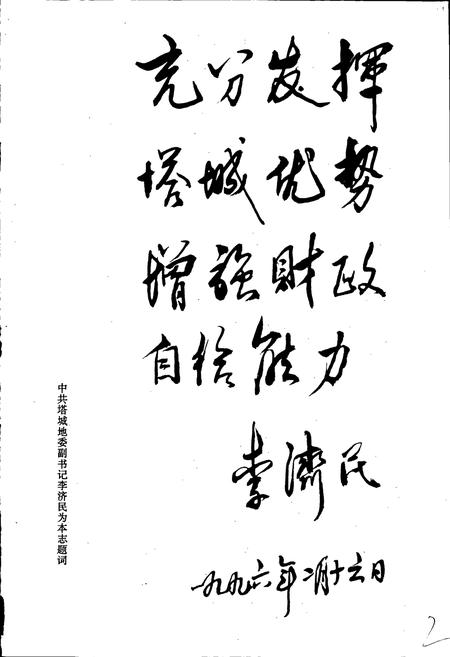 充分发挥
塔城优势
增强财政
自给能力
李济民
一九九六年二月十六日
中共塔城地委副书记李济民为本志题词